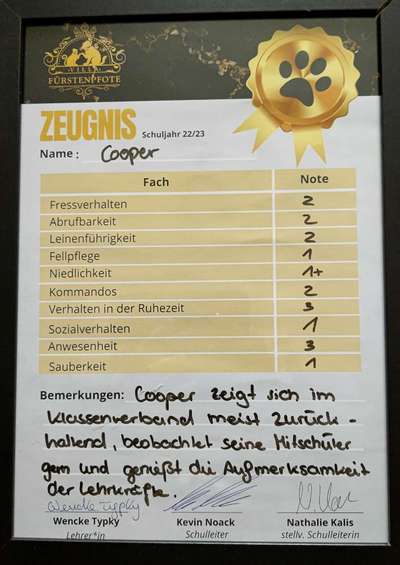 VILLA
FÜRSTENPFOTE
ZEUGNIS Schuljahr 22/23
Name: Cooper
Fach Note
Fressverhalten 2
Abrufbarkeit 2
Leinenführigkeit 2
Fellpflege 1
Niedlichkeit 1+
Kommandos 2
Verhalten in der Ruhezeit 3
Sozialverhalten 1
Anwesenheit 3
Sauberkeit 1
Bemerkungen: Cooper zeigt sich im
Klassenverband meist zurück-
haltend, beobachtet seine Mitschüler
gern und genießt die Aufmerksamkeit
der Lehrkräfte.
Wencke Typky
Wencke Typky Kevin Noack Nathalie Kalis
Lehrer*in Schulleiter stellv. Schulleiterin